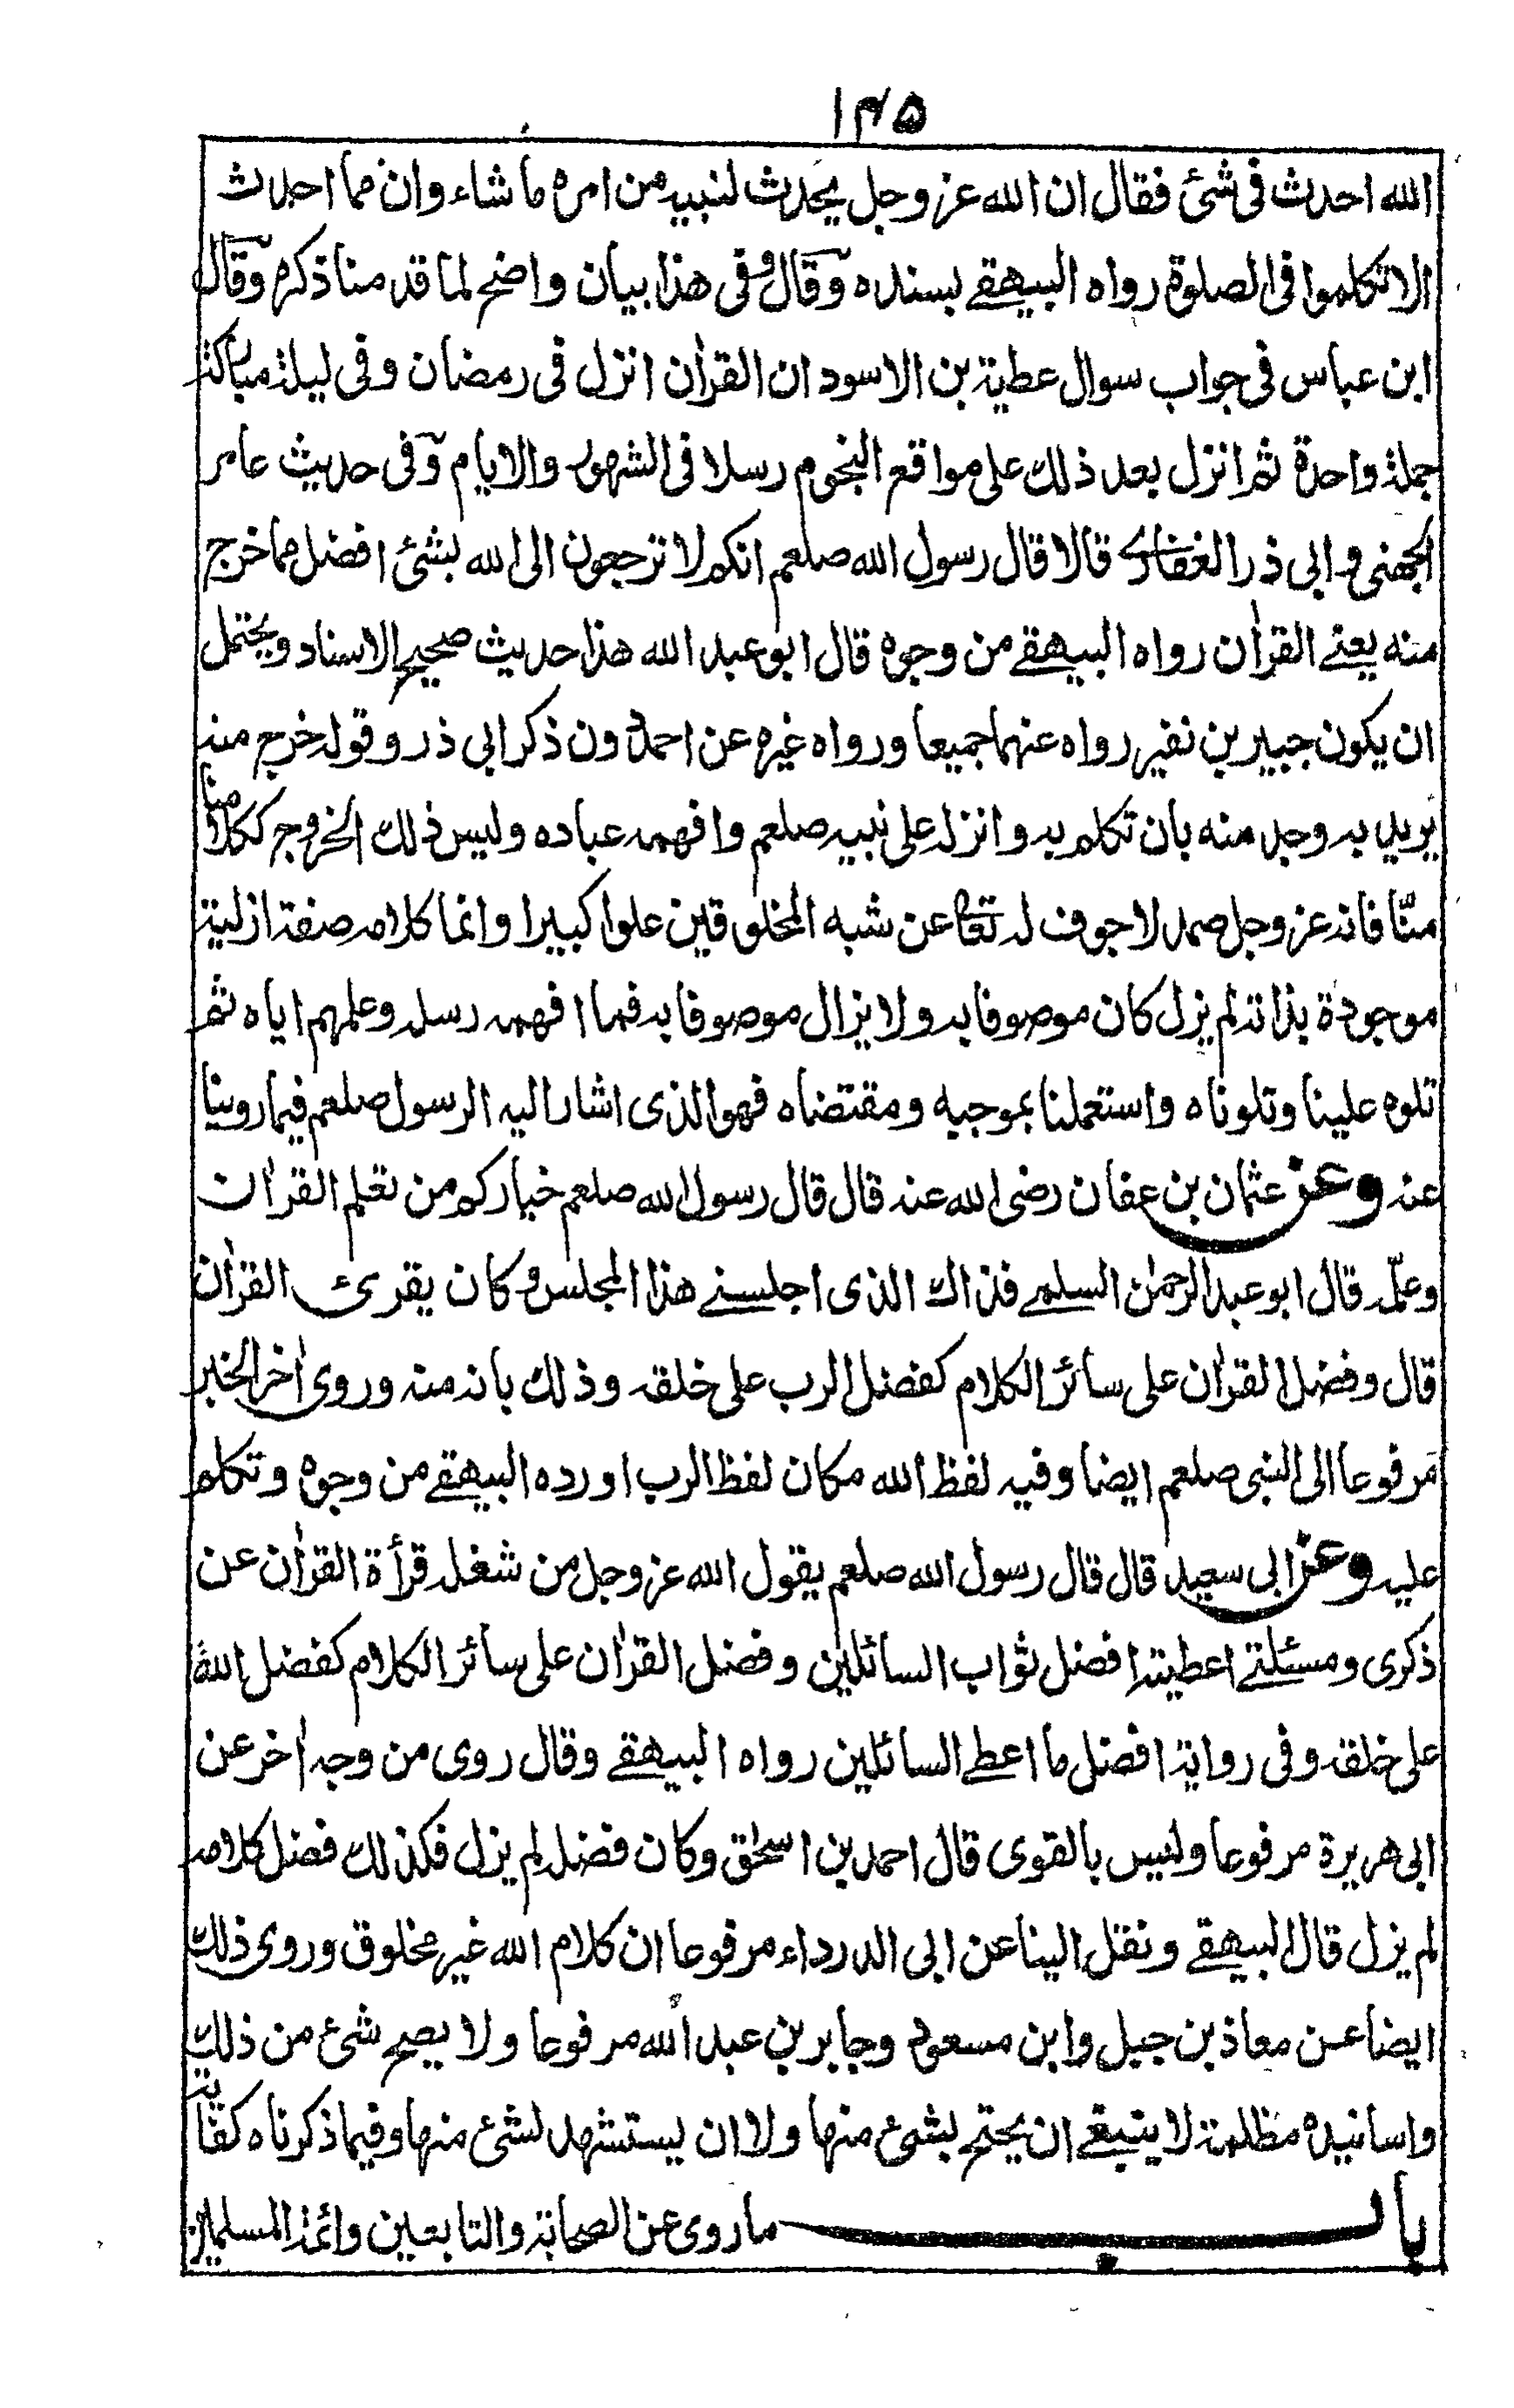 ۱۴۵
الله احدث فى شئ فقال ان الله عز وجل يحدث لنبيه من امره ما شاء وان مما احدث
الا تكلموا فى الصلوة رواه البيهقے بسنده وقال وفى هذا بيان واضح لما قدمنا ذكره وقال
ابن عباس فى جواب سوال عطية بن الاسود ان القراٰن انزل فى رمضان وفى ليلة مباركة
جملة واحدة ثم انزل بعد ذلك على مواقع النجوم رسلا فى الشهور والايام وفى حديث عامر
الجهنى وابى ذر الغفارے قالا قال رسول الله صلعم انكم لا ترجعون الى الله بشئ افضل مما خرج
منه يعنے القراٰن رواه البيهقے من وجوه قال ابو عبد الله هذا حديث صحيح الاسناد ويحتمل
ان يكون جبير بن نفير رواه عنهما جميعا ورواه غيره عن احمد دون ذكر ابى ذر وقوله خرج منه
يريد به وجد منه بان تكلم به وانزله على نبيه صلعم وافهمه عباده وليس ذلك الخروج ككلامنا
منّا فانه عز وجل صمد لا جوف له تعا عن شبه المخلوقين علوا كبيرا وانما كلامه صفة ازلية
موجودة بذاته لم يزل كان موصوفا به ولا يزال موصوفا به فما افهمه رسله وعلمهم اياه ثم
تلوه علينا وتلوناه واستعملنا بموجبه ومقتضاه فهو الذى اشار اليه الرسول صلعم فيما روينا
عنه وعن عثمان بن عفان رضى الله عنه قال قال رسول الله صلعم خياركم من تعلم القراٰن
وعلّمه قال ابو عبد الرحمٰن السلمے فذاك الذى اجلسنے هذا المجلس وكان يقرئ القراٰن
قال وفضل القراٰن على سائر الكلام كفضل الرب على خلقه وذلك بانه منه وروى اٰخر الخبر
مرفوعا الى النبى صلعم ايضا وفيه لفظ الله مكان لفظ الرب اورده البيهقے من وجوه وتكلم
عليه وعن ابى سعيد قال قال رسول الله صلعم يقول الله عز وجل من شغله قرأة القراٰن عن
ذكرى ومسئلتے اعطيته افضل ثواب السائلين وفضل القراٰن على سائر الكلام كفضل الله
على خلقه وفى رواية افضل ما اعطے السائلين رواه البيهقے وقال روى من وجه اٰخر عن
ابى هريرة مرفوعا وليس بالقوى قال احمد بن اسحٰق وكان فضله لم يزل فكذلك فضل كلامه
لم يزل قال البيهقے ونقل الينا عن ابى الدرداء مرفوعا ان كلام الله غير مخلوق وروى ذلك
ايضا عن معاذ بن جبل وابن مسعود وجابر بن عبد الله مرفوعا ولا يصح شئ من ذلك
واسانيده مظلمة لا ينبغے ان يحتج بشئ منها ولا ان يستشهد لشئ منها وفيما ذكرناه كفاية
باب ما روى عن الصحابة والتابعين وائمة المسلمين